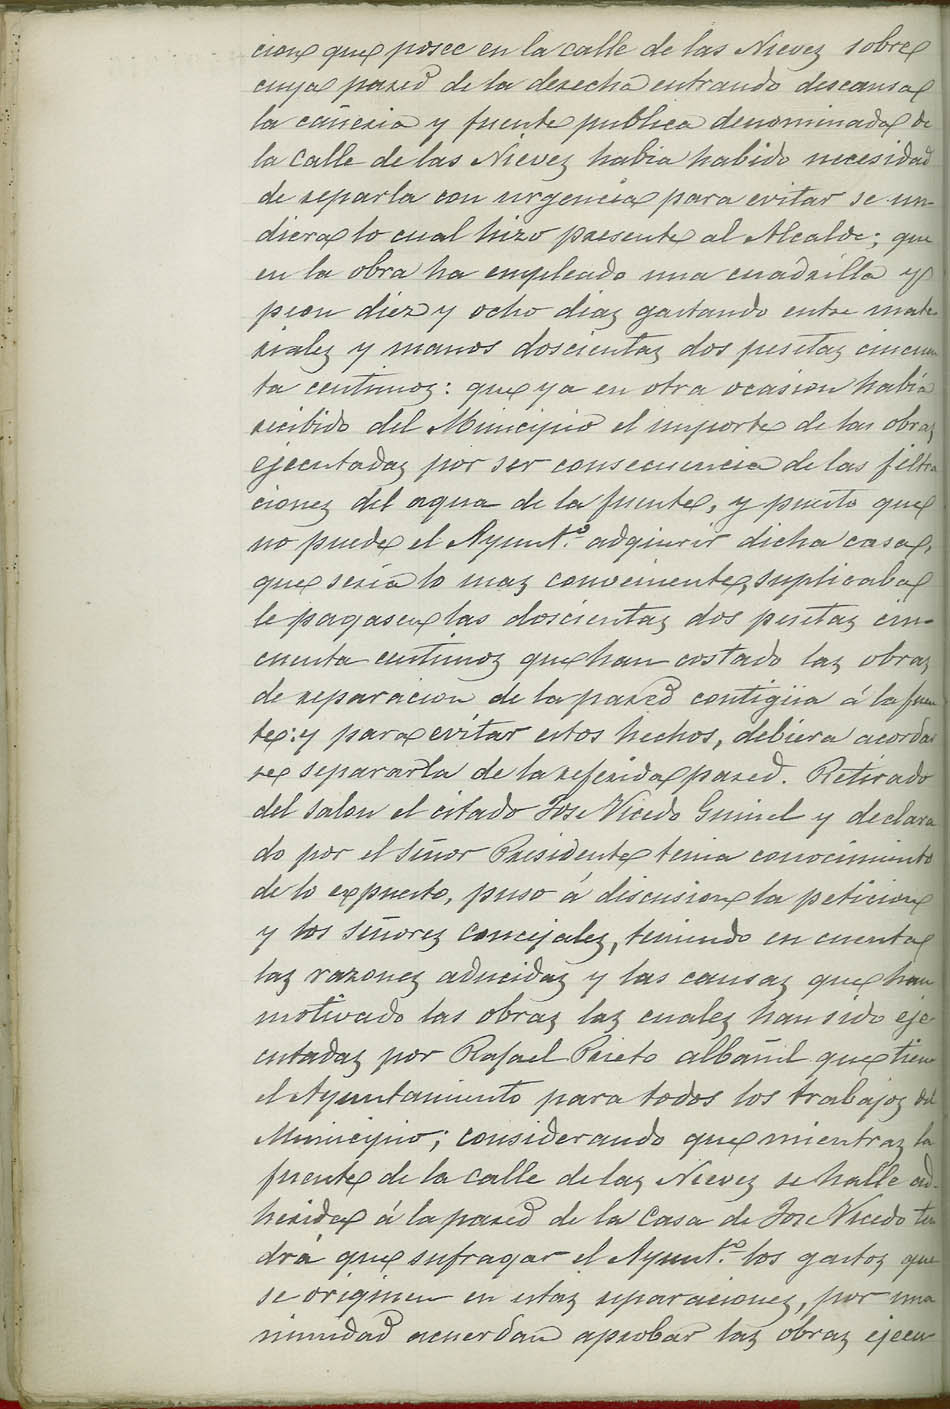 cion que posee en la calle de las Nieves sobre
cuya pared de la derecha entrando descansa
la cañeria y fuente publica denominada de
la Calle de las Nieves habia habido necesidad
de reparla con urgencia para evitar se un-
diera lo cual hizo presente al Alcalde; que
en la obra ha empleado una cuadrilla y
peon diez y ocho dias gastando entre mate
riales y manos doscientas dos pesetas cincuen
ta centimos: que ya en otra ocasion habia
recibido del Municipio el importe de las obras
ejecutadas por ser consecuencia de las filtra
ciones del agua de la fuente, y puesto que
no puede el Ayunt.º adquirir dicha casa,
que seria lo mas conveniente, suplicaba
le pagasen las doscientas dos pesetas cin-
cuenta centimos que han costado las obras
de reparacion de la pared contigüa á la fuen
te: y para evitar estos hechos, debiera acordar
se separarla de la referida pared. Retirado
del salon el citado Jose Vicedo Guinel y declara
do por el Señor Presidente tenia conocimiento
de lo expuesto, puso á discusion la peticion
y los Señores Concejales, teniendo en cuenta
las razones aducidas y las causas que han
motivado las obras las cuales han sido eje
cutadas por Rafael Prieto albañil que tiene
el Ayuntamiento para todos los trabajos del
Municipio; considerando que mientras la
fuente de la Calle de las Nieves se halle ad-
herida á la pared de la Casa de Jose Vicedo ten
drá que sufragar el Ayunt.º los gastos que
se originen en estas reparaciones, por una
nimidad acuerdan aprobar las obras ejecu